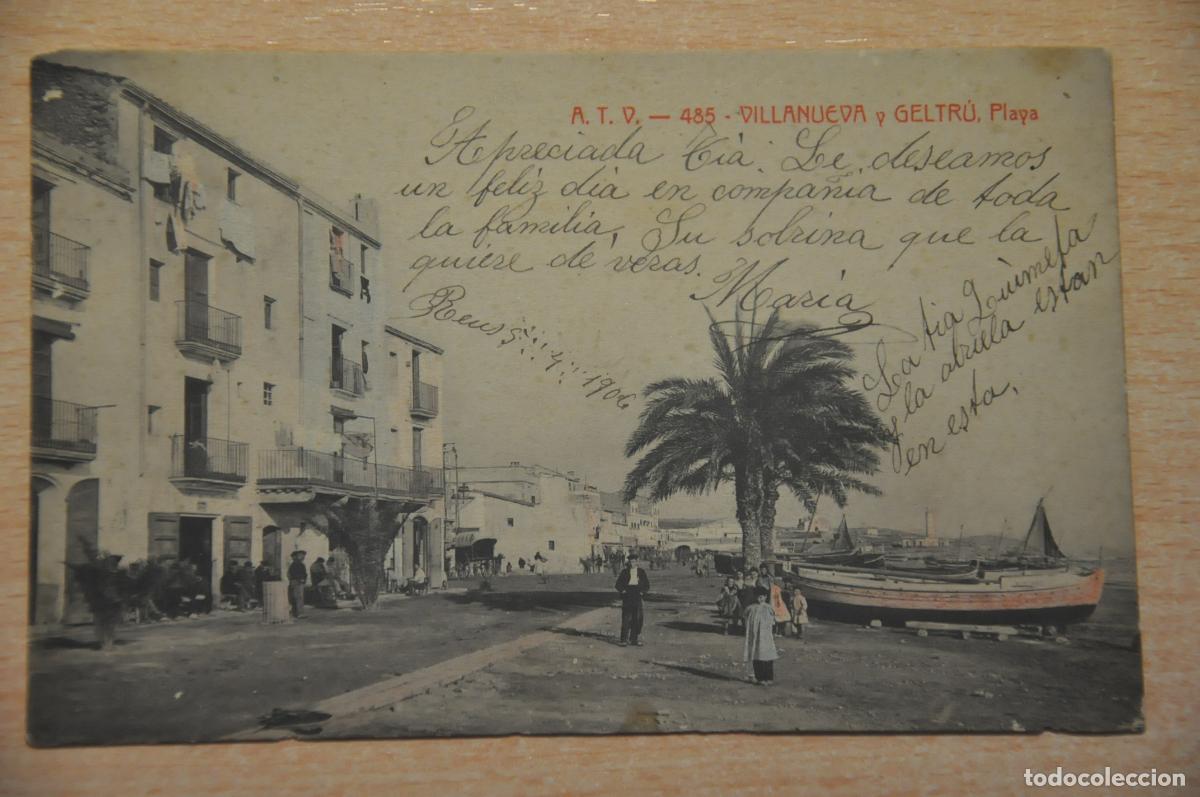 A. T. V. — 485 - VILLANUEVA y GELTRÚ, Playa
Apreciada Tia. Le deseamos
un feliz dia en compañia de toda
la familia, Su sobrina que la
quiere de veras.
Maria
Reus 4 1906
La tia Quimeta
y la abuela estan
en esta.
todocoleccion